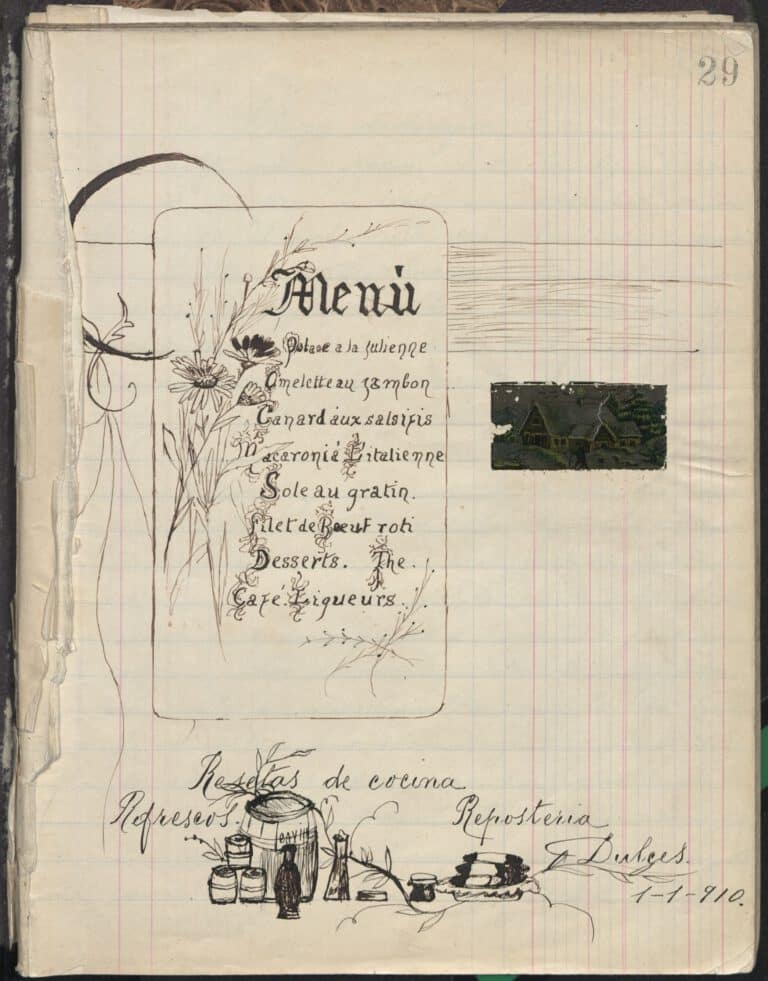 29
Menù
Potage a la Julienne
Omelette au jambon
Canard aux salsifis
Macaroni à L'italienne
Sole au gratin.
Filet de Bœuf roti
Desserts. The.
Café. Liqueurs.
Resetas de cocina
Refrescos. Reposteria
Dulces.
1-1-910.